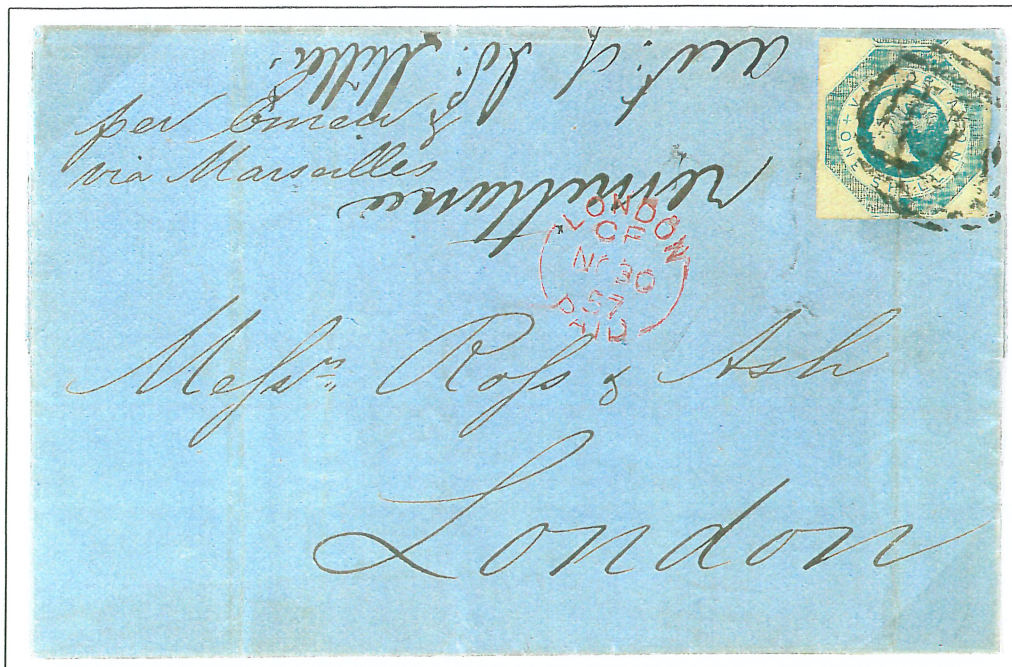 per Emeu &
via Marseilles
remittance
VICTORIA
ONE SHILLING
LONDON
CF
NO 30
57
PAID
Messrs. Ross & Ash
London